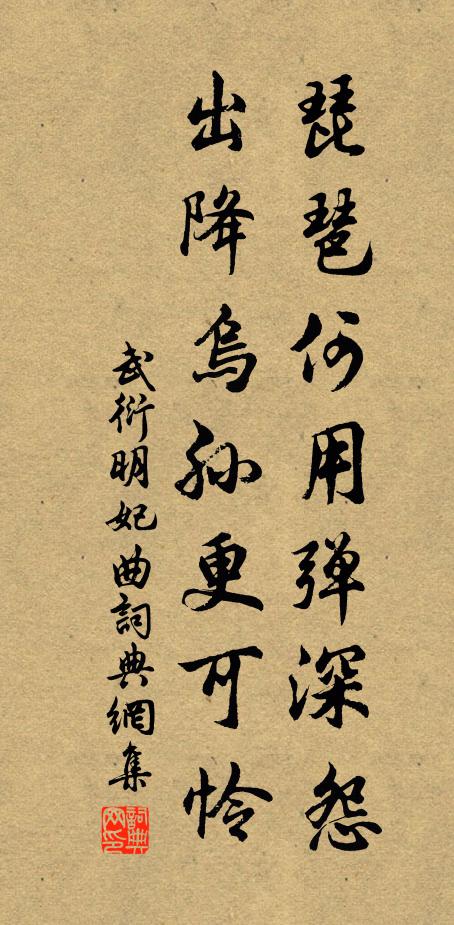 琵琶何用弹深怨
出降乌孙更可怜
武衍明妃曲詞典網集
詞典网印